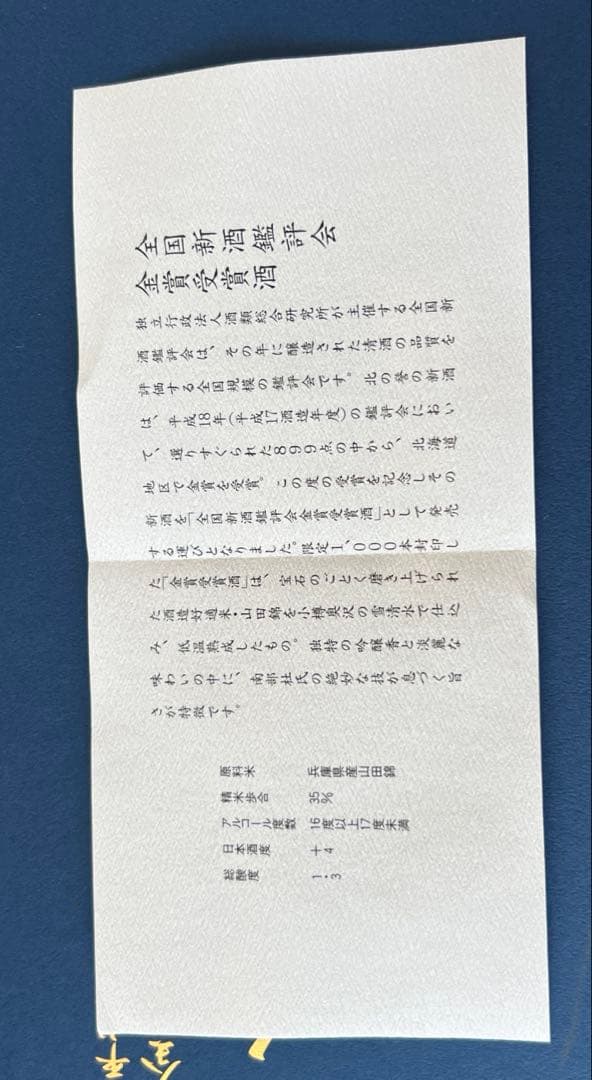 全国新酒鑑評会
金賞受賞酒
独立行政法人酒類総合研究所が主催する全国新
酒鑑評会は、その年に醸造された清酒の品質を
評価する全国規模の鑑評会です。北の誉の新酒
は、平成18年（平成17酒造年度）の鑑評会におい
て、選りすぐられた８９９点の中から、北海道
地区で金賞を受賞。この度の受賞を記念しその
新酒を「全国新酒鑑評会金賞受賞酒」として発売
する運びとなりました。限定１、０００本封印し
た「金賞受賞酒」は、宝石のごとく磨き上げられ
た酒造好適米・山田錦を小樽奥沢の雪清水で仕込
み、低温熟成したもの。独特の吟醸香と淡麗な
味わいの中に、南部杜氏の絶妙な技が息づく旨
さが特徴です。
原料米 兵庫県産山田錦
精米歩合 35%
アルコール度数 16度以上17度未満
日本酒度 ＋4
総酸度 1.3
金